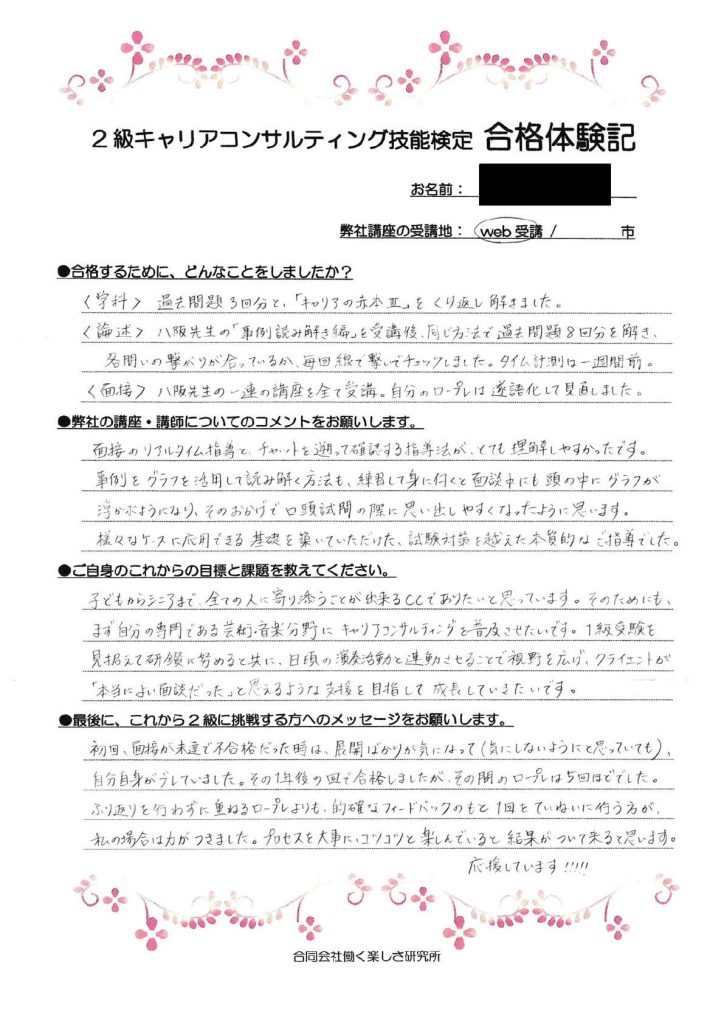 2級キャリアコンサルティング技能検定 合格体験記
お名前：
弊社講座の受講地： web 受講 / 市
●合格するために、どんなことをしましたか？
〈学科〉 過去問題3回分と、「キャリアの赤本Ⅲ」をくり返し解きました。
〈論述〉 八阪先生の「事例読み解き編」を受講後、同じ方法で過去問題8回分を解き、
各問いの繋がりが合っているか、毎回線で繋いでチェックしました。タイム計測は一週間前。
〈面接〉 八阪先生の一連の講座を全て受講。自分のロープレは逐語化して見直しました。
●弊社の講座・講師についてのコメントをお願いします。
面接のリアルタイム指導と、チャットを遡って確認する指導法が、とても理解しやすかったです。
事例をグラフを活用して読み解く方法も、練習して身に付くと面談中にも頭の中にグラフが
浮かぶようになり、そのおかげで口頭試問の際に思い出しやすくなったように思います。
様々なケースに応用できる基礎を築いていただけた、試験対策を越えた本質的なご指導でした。
●ご自身のこれからの目標と課題を教えてください。
子どもからシニアまで、全ての人に寄り添うことが出来るCCでありたいと思っています。そのためにも、
まず自分の専門である芸術・音楽分野にキャリアコンサルティングを普及させたいです。1級受験を
見据えて研鑽に努めると共に、日頃の演奏活動と連動させることで視野を広げ、クライエントが
「本当によい面談だった」と思えるような支援を目指して成長していきたいです。
●最後に、これから2級に挑戦する方へのメッセージをお願いします。
初回、面接が未達で不合格だった時は、展開ばかりが気になって(気にしないようにと思っていても)、
自分自身がブレていました。その1年後の回で合格しましたが、その間のロープレは5回ほどでした。
ふり返りを行わずに重ねるロープレよりも、的確なフィードバックのもと1回をていねいに行う方が、
私の場合は力がつきました。プロセスを大事に、コツコツと楽しんでいると結果がついて来ると思います。
応援しています!!!!!
合同会社働く楽しさ研究所